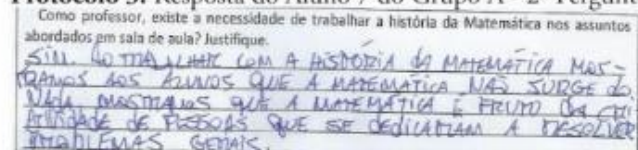 Protocolo 3: Resposta do Aluno 7 do Grupo A - 2ª Pergunt
Como professor, existe a necessidade de trabalhar a história da Matemática nos assuntos
abordados em sala de aula? Justifique.
SIM. AO TRABALHAR COM A HISTÓRIA DA MATEMÁTICA MOS-
TRAMOS AOS ALUNOS QUE A MATEMÁTICA NÃO SURGE DO
NADA, MOSTRAMOS QUE A MATEMÁTICA É FRUTO DA CRI-
ATIVIDADE DE PESSOAS QUE SE DEDICAVAM A RESOLVER
PROBLEMAS GERAIS.